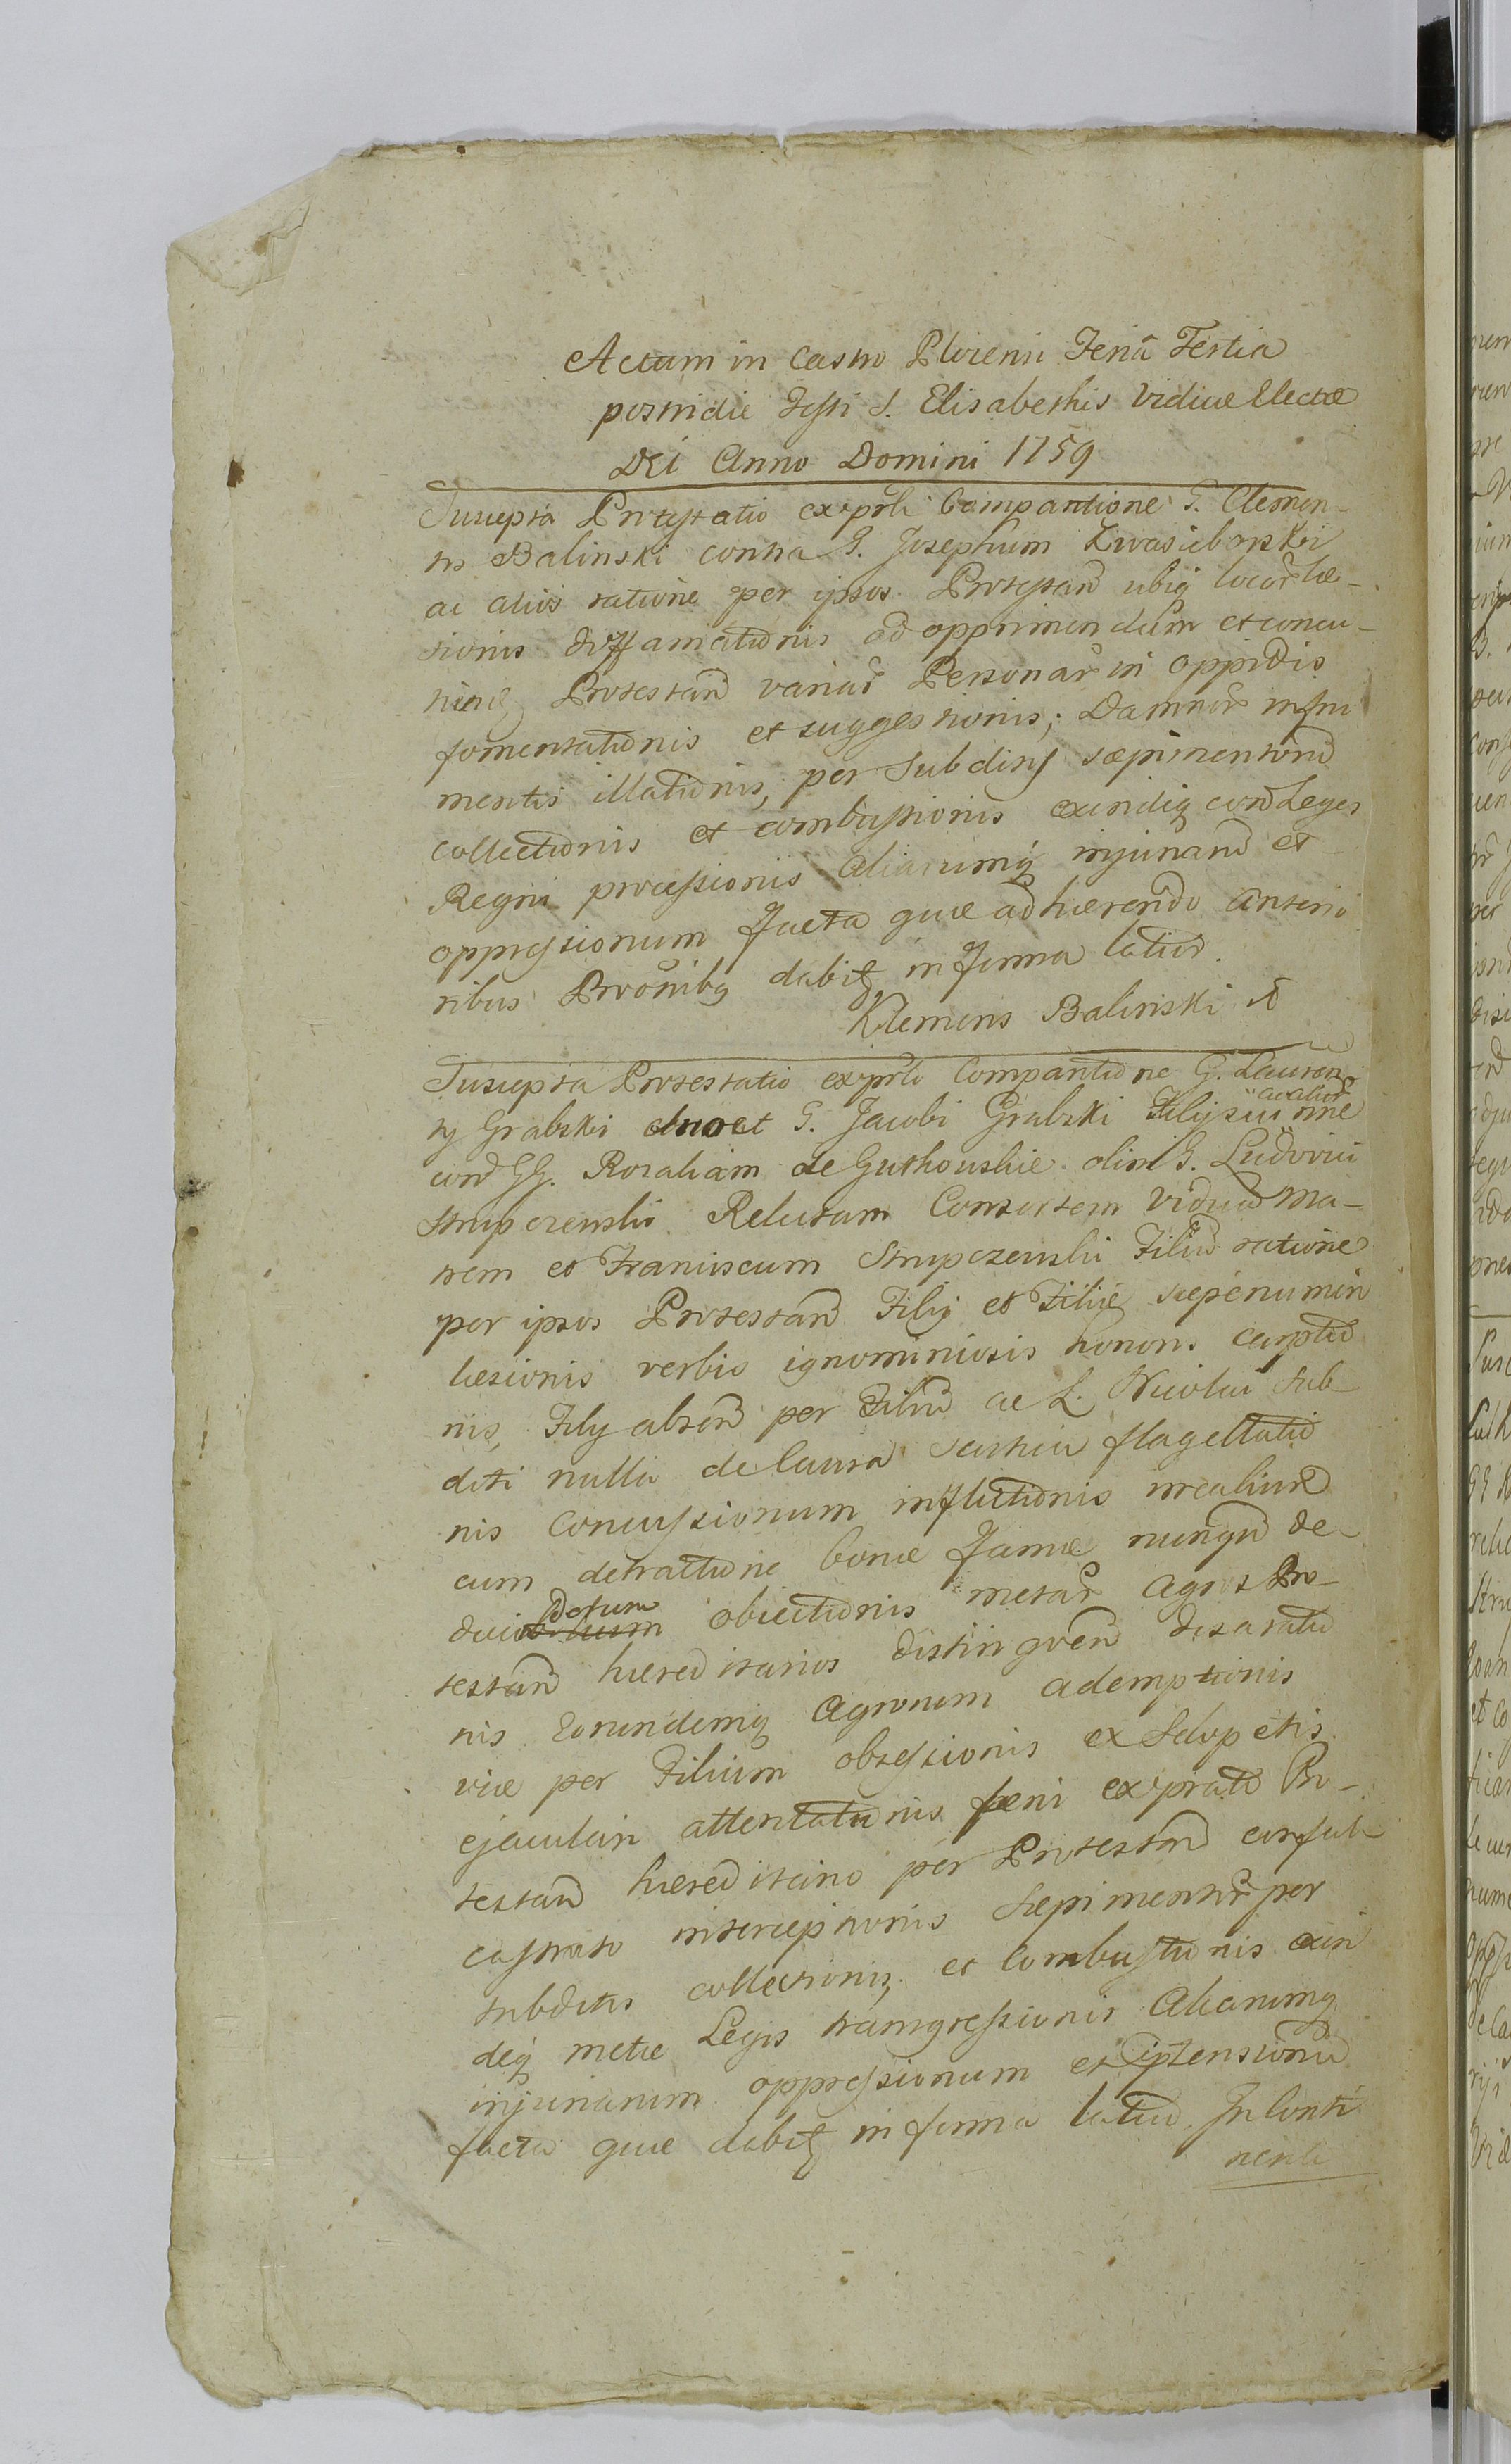 Actum in Castro Plocensi Feriâ Tertia
postridie Festi S. Elisabethis Viduae Electae
Dei Anno Domini 1759
Suscepta Protestatio ex prli Comparitione G. Clemen-
tis Balinski contra G. Josephum Zwasieborski
ac alios ratione per ipsos Protestant ubiq locor lae-
sionis diffamationis ad opprimendum et concu-
tiend Protestand variar Personar in oppidis
fomentationis et suggestionis; Damnor
mentis illationis, per Subditos saepimentorum
collectionis et combustionis exindiq contra Leges
Regni processionis aliarumq injuriarum et
oppressionum facta quae adhaerendo anterio
ribus Prottonibq dabitq in forma latior.
Klemens Balinski
Suscepta Protestatio ex prli Comparitione G. Lauren
ty Grabski suo et G. Jacobi Grabski Filij sui nne
ac alior
cora GG. Rozaliam de Gutkowskie olim G. Ludovici
Strupczewski Relictam Consortem Viduam Ma-
trem et Franciscum Strupczewski Filium ratione
per ipsos Protestand Filij et Filie saepenumero
laesionis verbis ignominiosis honoris captio
nis, Filij absen per Filium ac L. Nicolai Sub
diti nulla de causa scuticu flagellatio
nis concussionum inflictionis
cum detractione bonae famae nunqm de
duci obiectionis metar agros Pro-
testand haereditarios distinguen desaratio
nis Eorundemq agrorum ademptionis
viae per Filium obsessionis ex Sclopetis
ejaculari attentationis faeni ex prato Pro-
testand haereditario per Protestand
castrato interceptionis Saepimentor per
subditos collectionis, et Combustionis exin
deq metae Legis transgressionis Aliarumq
injuriarum oppressionum et
facta quae dabitq in forma latior. In Conti
nenti